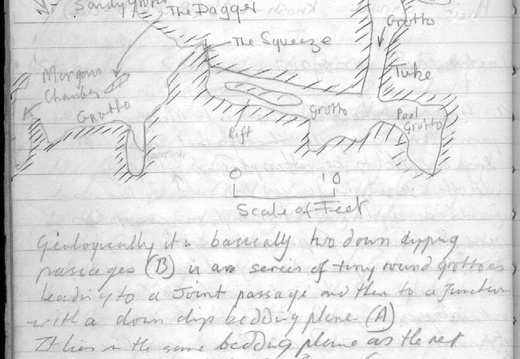 Sandy Grotto
The Dagger
Grotto
The Squeeze
Tube
Morgans
Chamber
Grotto
Grotto
Pool
Grotto
Rift
0 10
Scale of Feet
Geologically it is basically two down dipping
passages (B) is a series of tiny round grottoes
leading to a Joint passage and then to a Junction
with a down dip bedding plane (A)
It lies in the same bedding plane as the